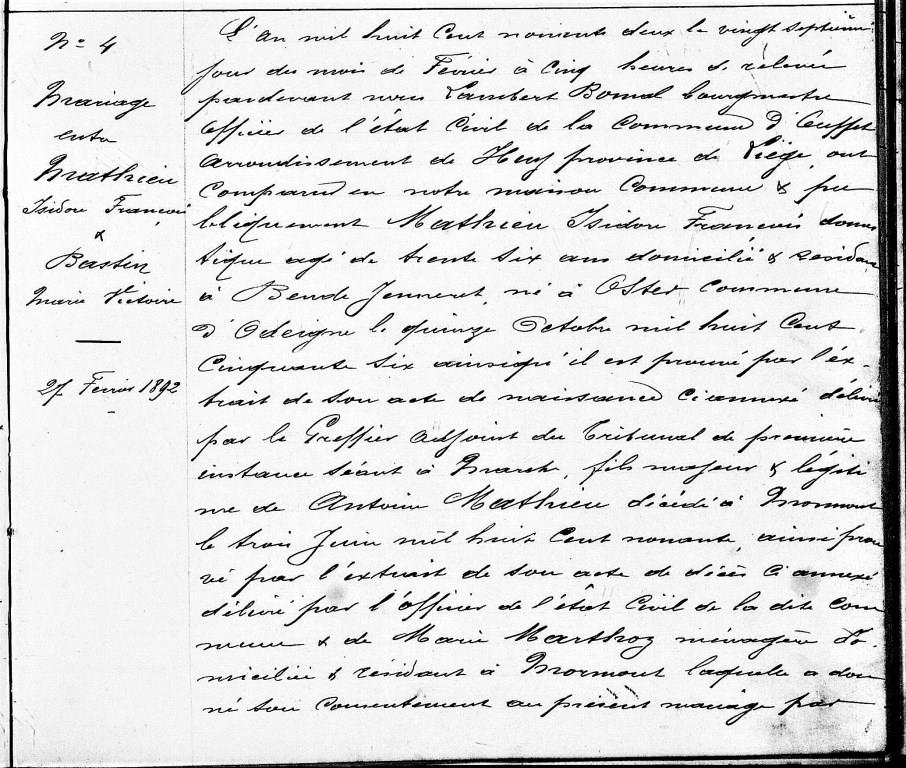 N° 4
Mariage
entre
Mathieu
Isidore François
&
Bastin
Marie Victoire
27 Février 1892
L'An mil huit cent nonante deux le vingt septième
jour du mois de Février à cinq heures de relevée
pardevant nous Lambert Bomal bourgmestre
officier de l'état civil de la commune d'Ouffet
arrondissement de Huy province de Liège, ont
comparu en notre maison commune & pu
bliquement Mathieu Isidore François domes
tique agé de trente six ans domicilié & résidant
à Bende Jenneret, né à Oster commune
d'Odeigne le quinze Octobre mil huit cent
cinquante six ainsiqu'il est prouvé par l'ex
trait de son acte de naissance ci annexé délivré
par le Greffier adjoint du Tribunal de première
instance séant à Marche, fils majeur & légiti
me de Antoine Mathieu décédé à Mormont
le trois Juin mil huit cent nonante, ainsi prou
vé par l'extrait de son acte de décès ci annexé
délivré par l'officier de l'état civil de la dite com
mune & de Marie Marthoz ménagère do
miciliée & résidant à Mormont laquelle a don
né son consentement au présent mariage par